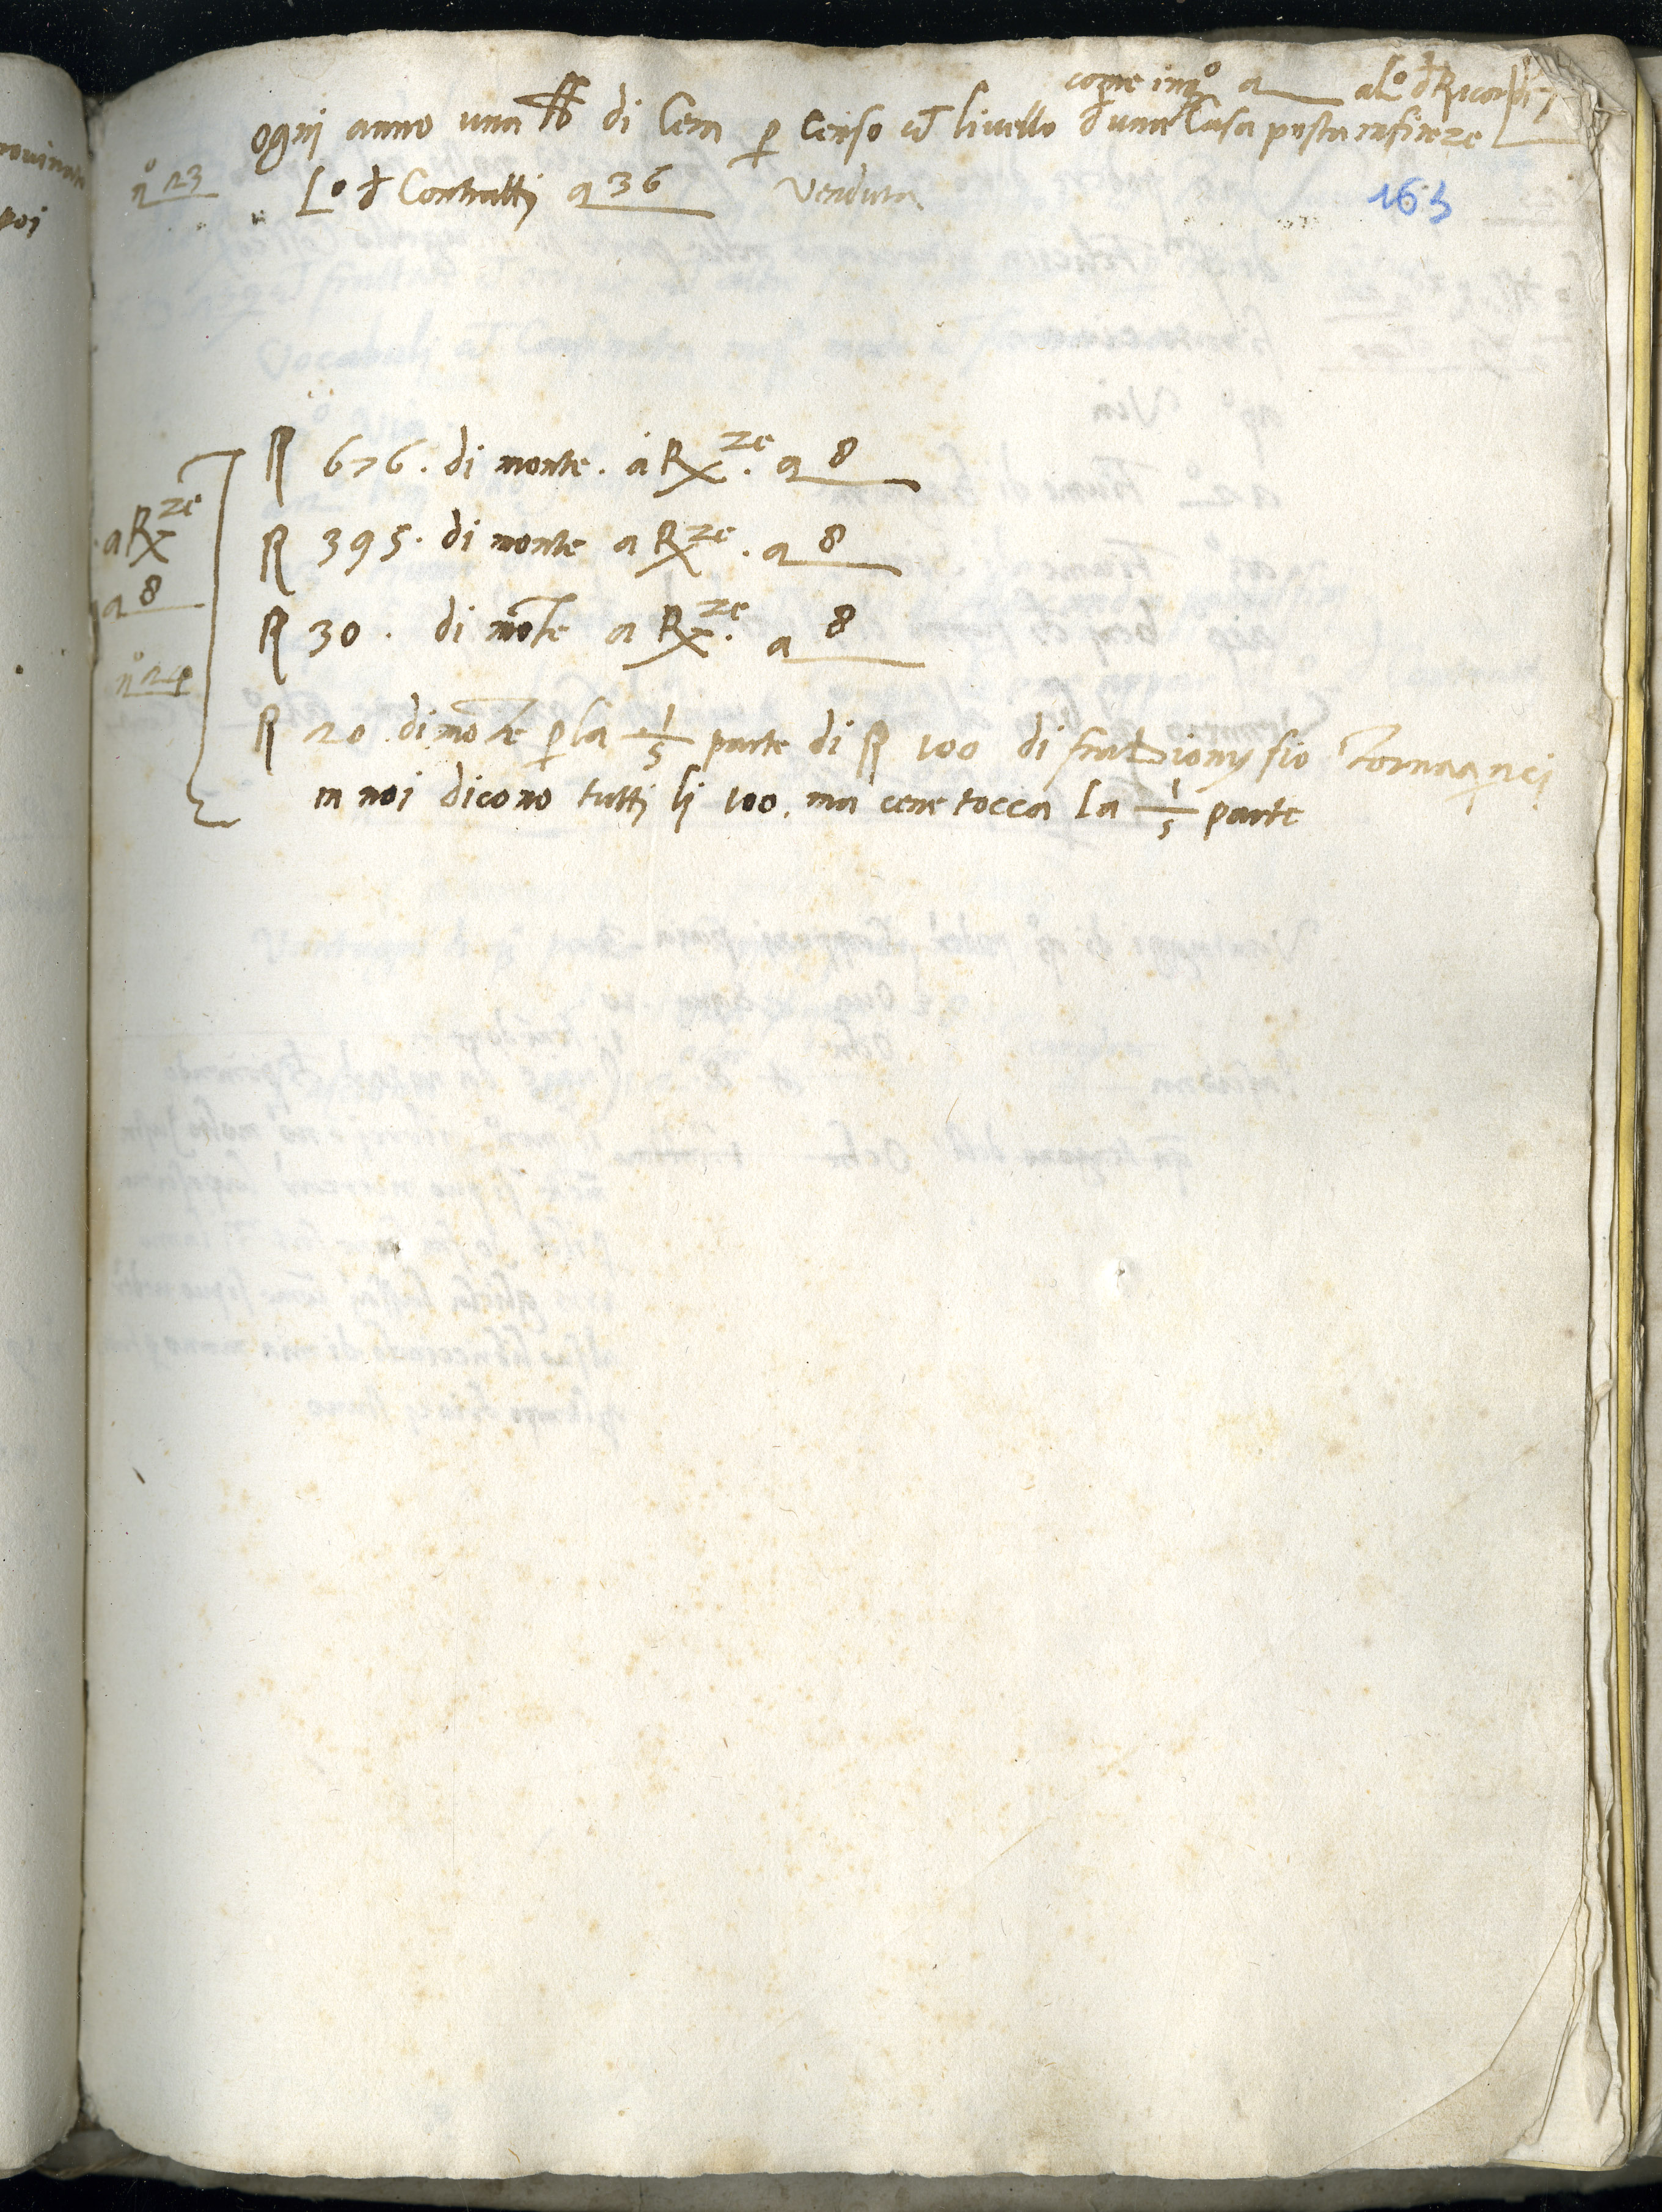 come in q.º a al.º d Ricordi
ogni anno una ℔ di Cera p censo et livello d una Casa posta in firēze
nº 23 Lº d Contratti a 36 venduta
163
R 676. di monte. a Rxze. a 8
a Rxze
R 395. di monte a Rxze. a 8
a 8
R 30. di mōte a Rxze. a 8
nº 24
R 20 di mōte p la 1/5 parte di R 100 di fra Dionysio Tornaq̄nci
in noi dicono tutti li 100. ma cene tocca la 1/5 parte